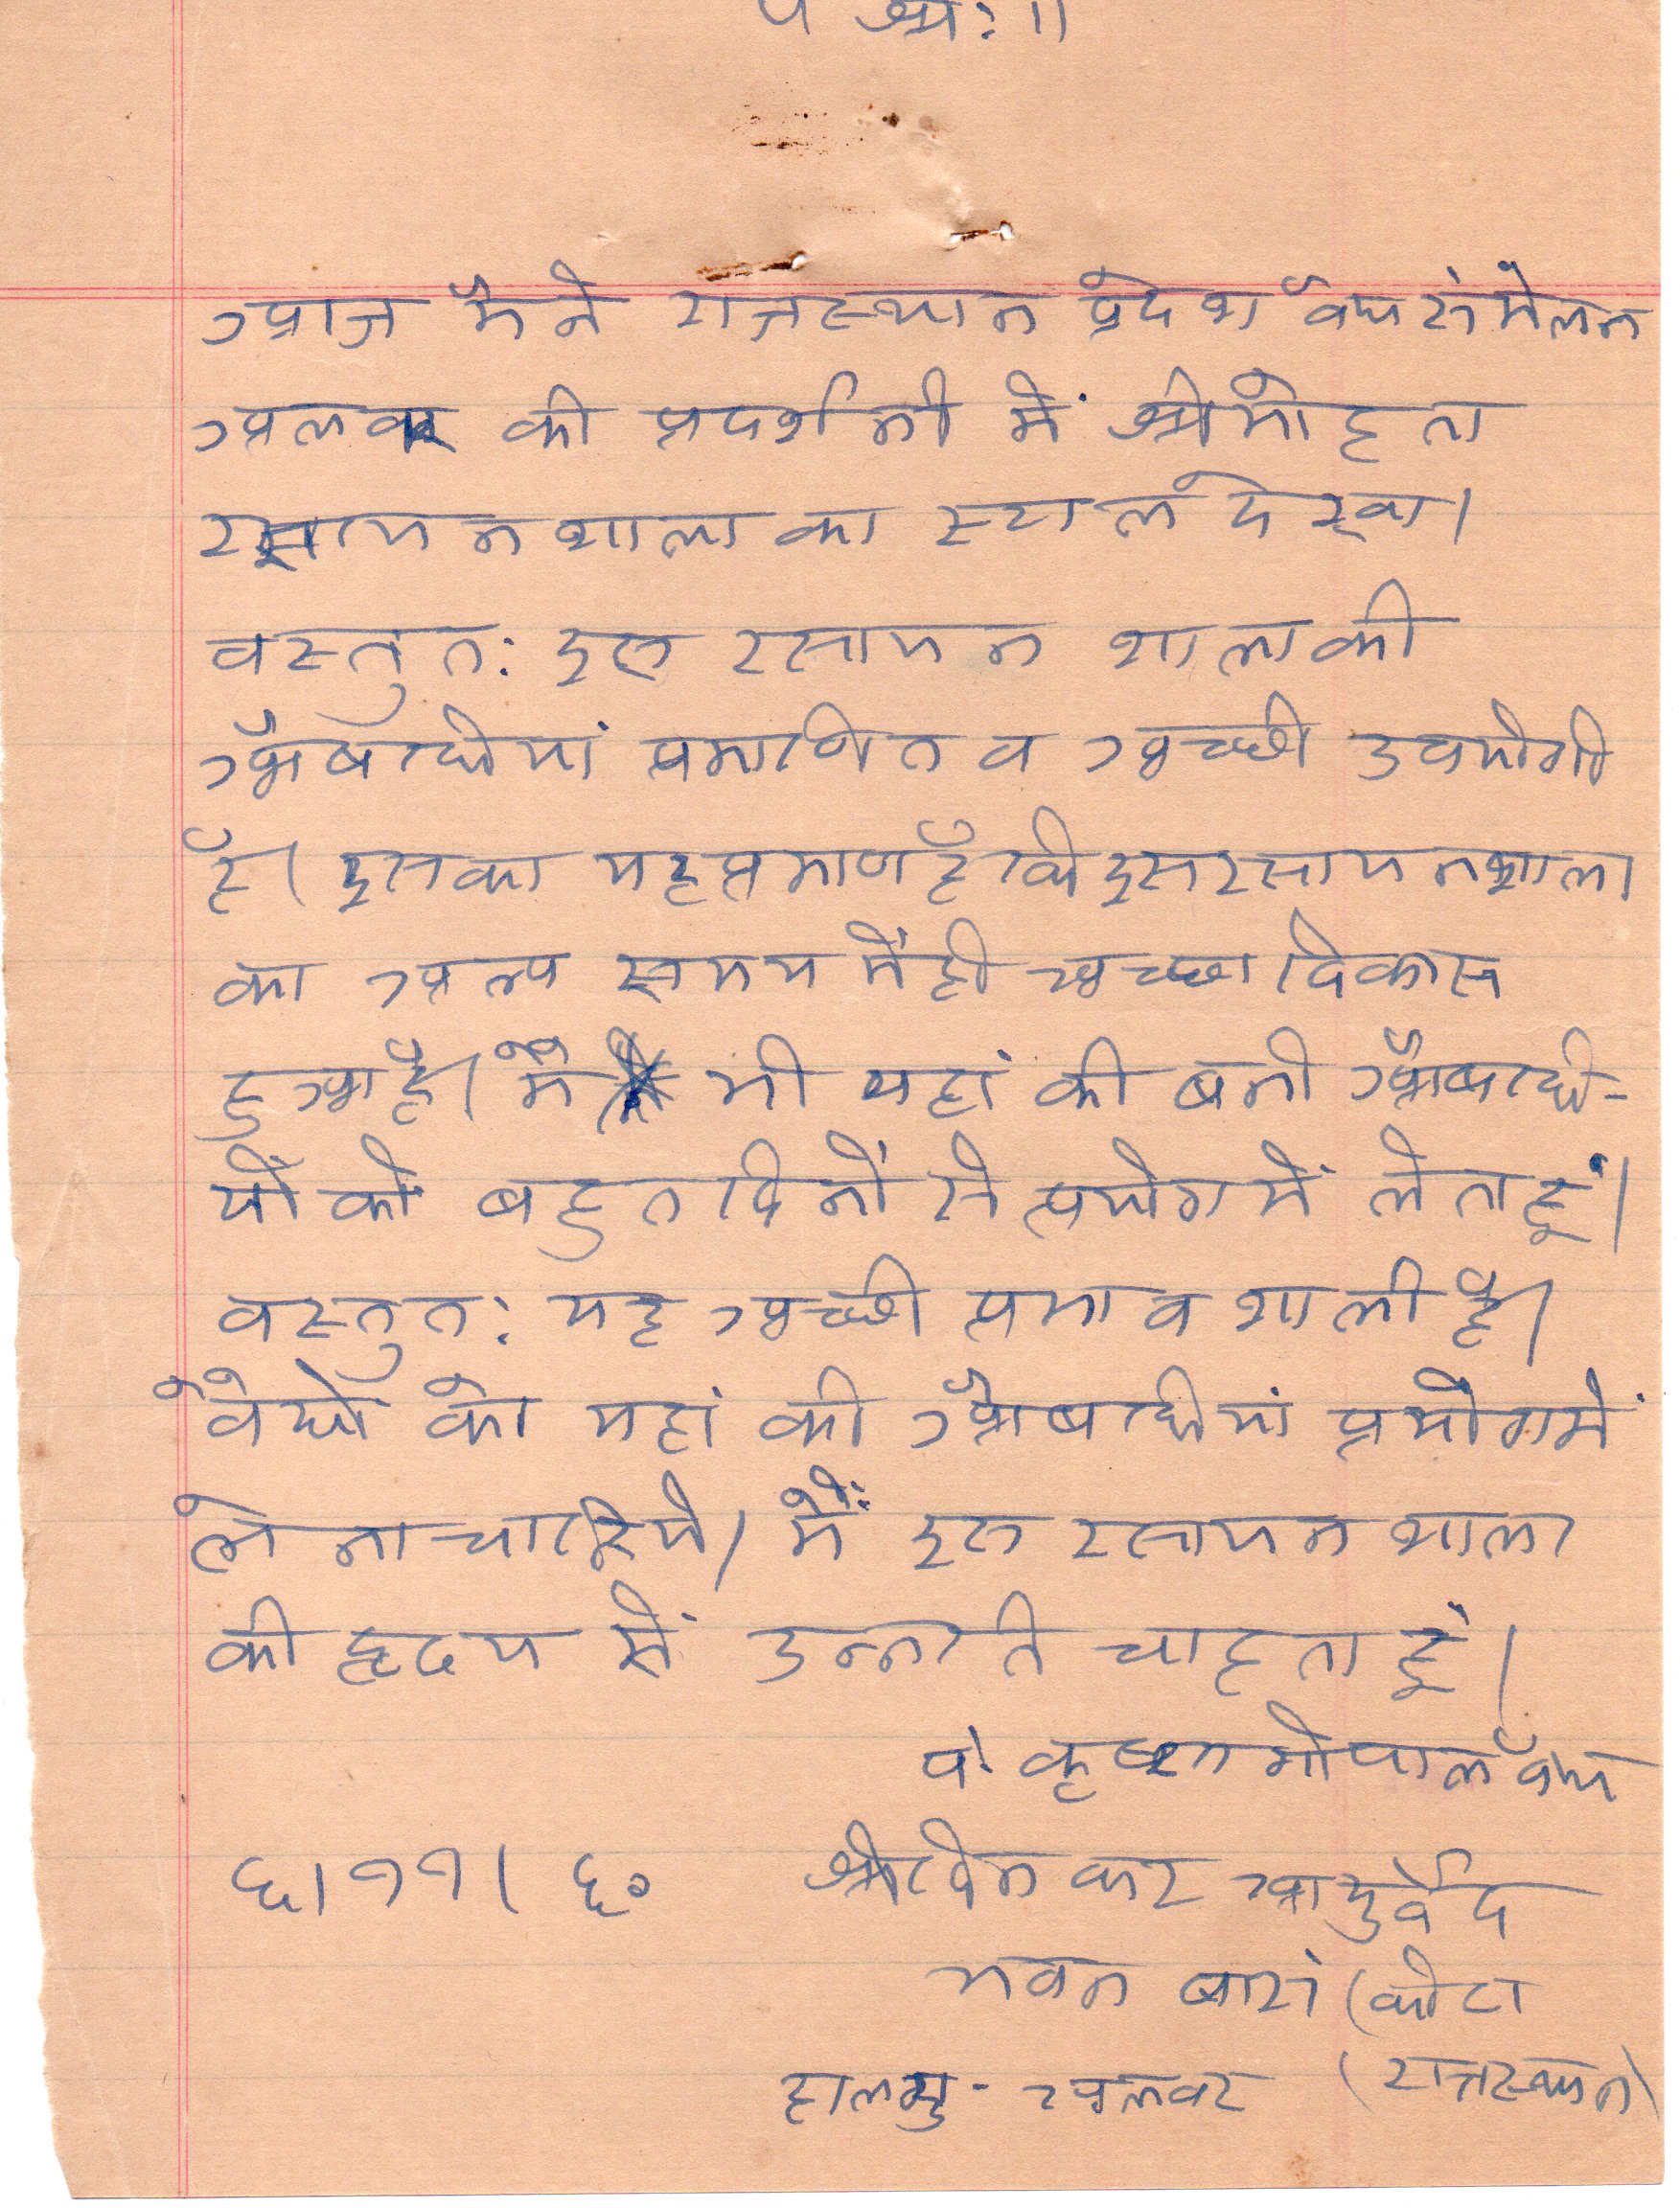 श्री: ॥
आज मैने राजस्थान प्रदेश वैद्य संमेलन
अलवर की प्रदर्शनी में श्रीमोहता
रसायनशाला का स्टाल देखा।
वस्तुत: इस रसायन शाला की
औषधीयां प्रमाणित व अच्छी उपयोगी
है। इसका यह प्रमाण है कि इस रसायनशाला
का अल्प समय में ही अच्छा विकास
हुआ है। मै भी यहां की बनी औषधि-
यों को बहुत दिनों से प्रयोग में लेता हूं।
वस्तुत: यह अच्छी प्रभावशाली है।
वैद्यो को यहां की औषधियां प्रयोग में
लेना चाहिये। मैं इस रसायन शाला
की हृदय से उन्नति चाहता हूं।
पं. कृष्ण गोपाल वैद्य
६।११।६० श्री दिनकर आयुर्वेद
भवन बारां (कोटा
हालमु- अलवर (राजस्थान)